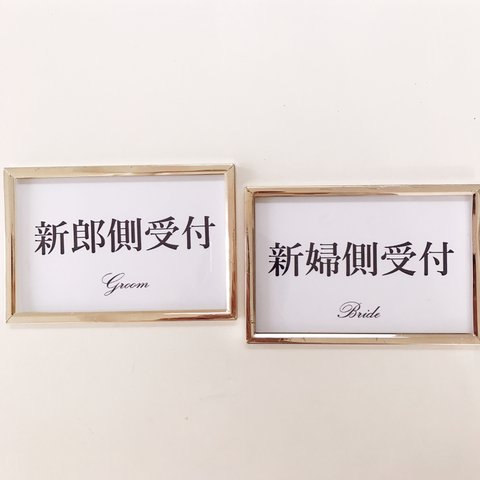 新郎側受付
Groom
新婦側受付
Bride